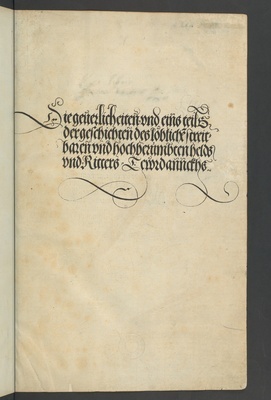 Die geuerlicheiten vnd eins teils
der geschichten des löblichen streit-
baren vnd hochberümbten helds
vnd Ritters Tewrdannckhs